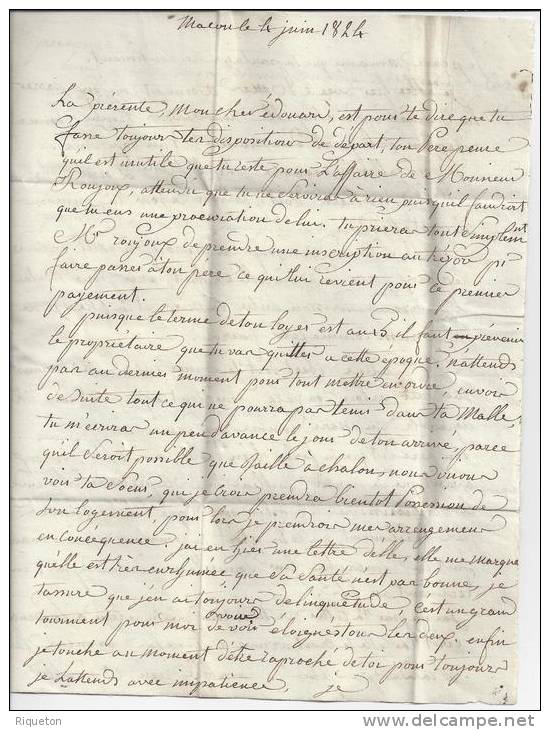 Macon le 4 juin 1824
La présente, Mon cher édouard, est pour te dire que tu
fasse toujours tes disposition de départ, ton Pere pense
qu'il est inutile que tu reste pour l'affaire de Monsieur
Roujoux, attendu que tu ne servira à rien puisquil faudroit
que tu eus une procuration de lui. tu prieras tout simplemt
Mr roujoux de prendre une inscription au
faire passer à ton père ce qui lui revient pour ce premier
payement.
puisque le terme de ton loyer est au 15, il faut prévenir
le propriétaire que tu vas quitter a cette epoque. n'attends
pas au dernier moment pour tout mettre en ordre, envois
de suite tout ce qui ne pourra pas tenir dans ta Malle,
tu m'écriras un peu d'avance le jour de ton arrivé, parce
qu'il seroit possible que j'aille à chalon, nous irions
voir ta Soeur, qui je crois prendra bientot Possession de
son logement, pour lors je prendrois mes arrengemens
en conséquence. j'ai eu hier une lettre d'elle, elle me marque
quelle est très enrhumée que sa santé n'est pas bonne, je
t'assure que j'en ai toujours de linquiétude, c'est un grand
tourment pour moi de vous voir eloignés tous les deux. enfin
je touche au moment d'être raproché de toi pour toujours
je t'attends avec impatience, je
Riqueton
www.delcampe.net